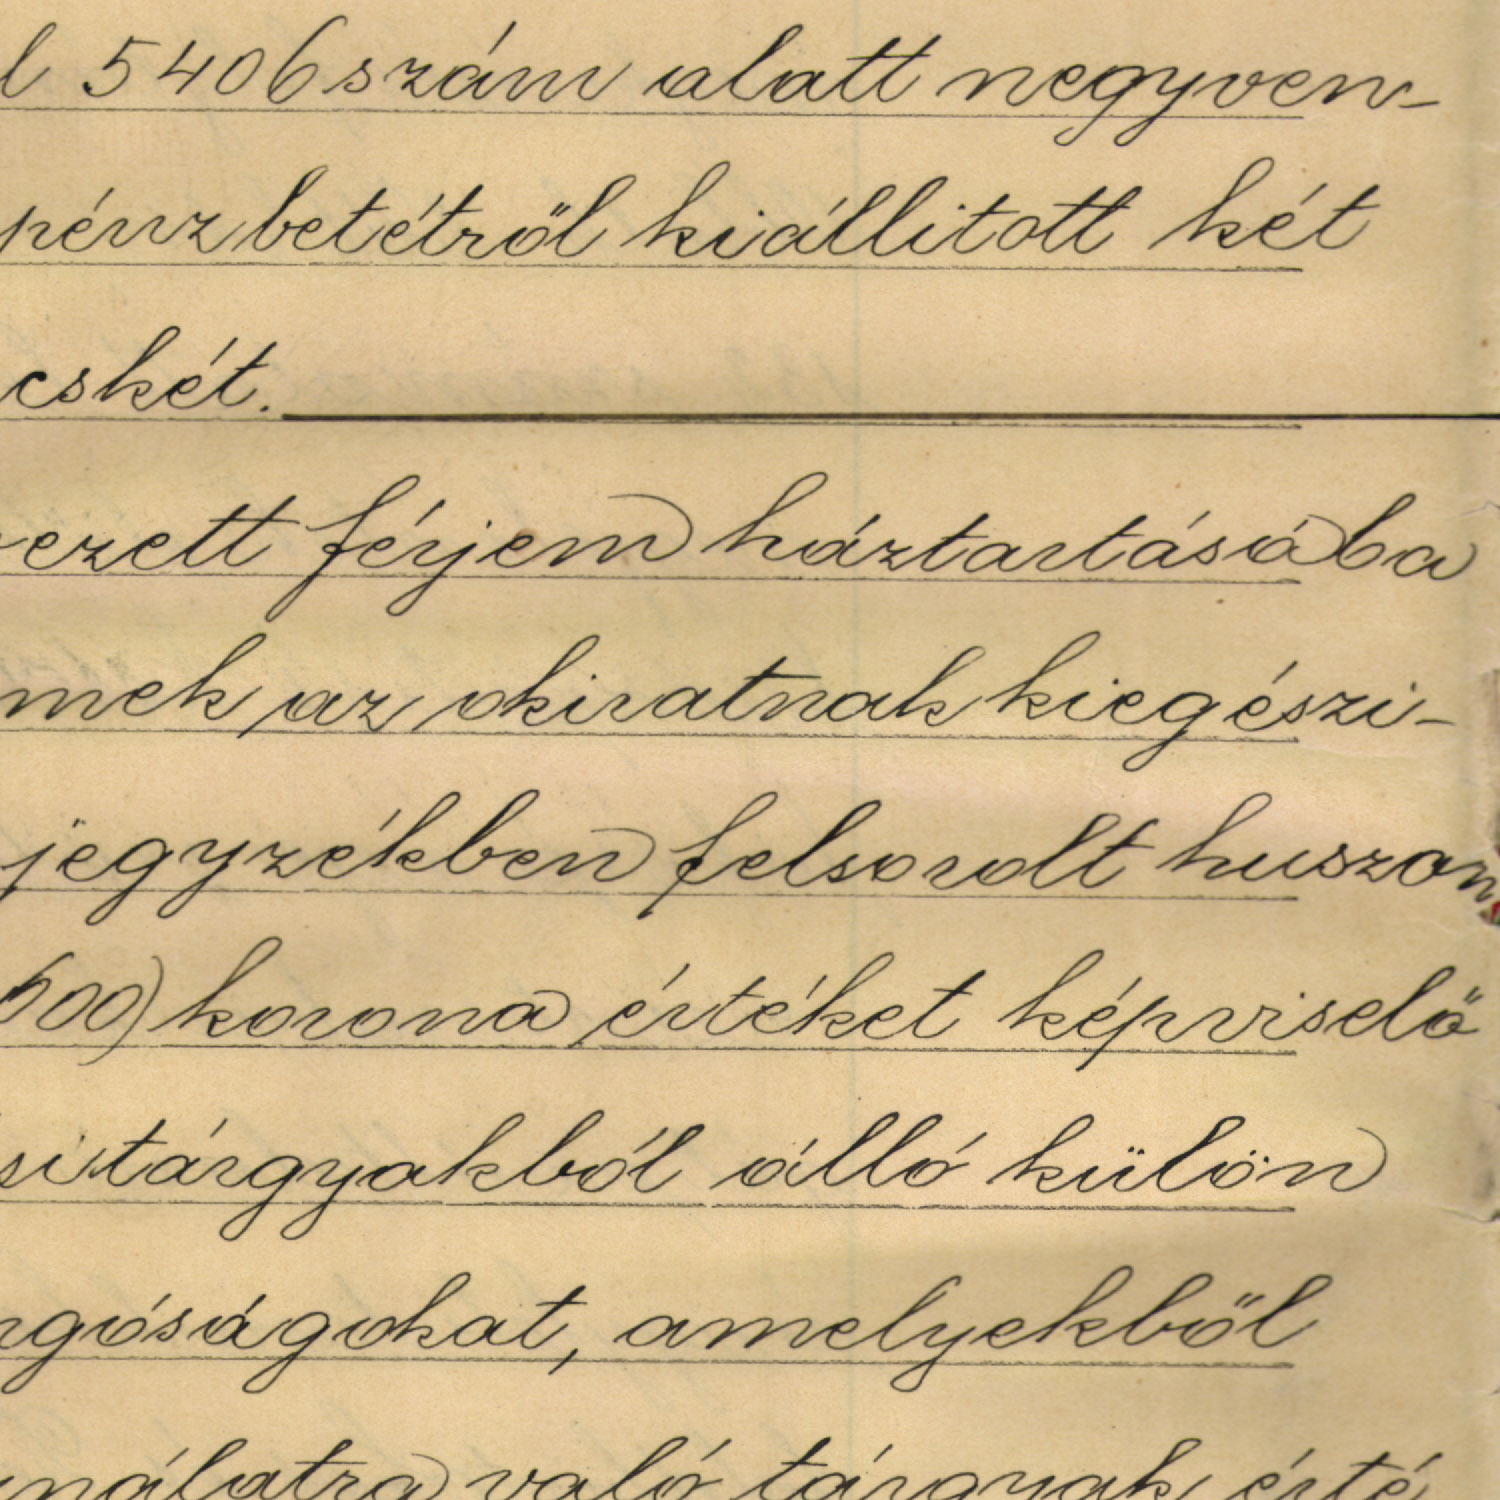 l 5406 szám alatt negyven-
pénzbetétről kiállitott két
cskét.
ezett férjem háztartásába
nek az okiratnak kiegészi-
jegyzékben felsorolt huszon
500) korona értéket képviselő
sitárgyakból álló külön
ngóságokat, amelyekből
nálatra való tárgyak érté